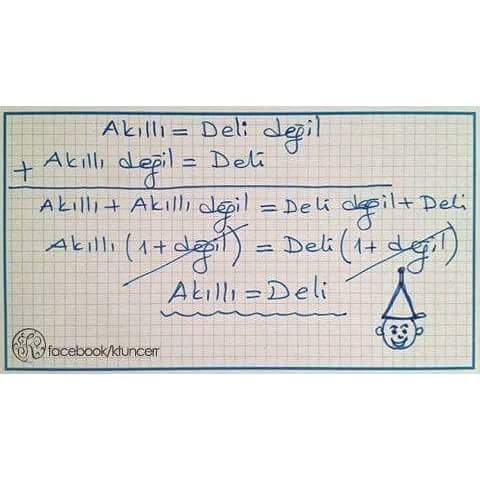 Akıllı = Deli değil
+ Akıllı değil = Deli
Akıllı + Akıllı değil = Deli değil + Deli
Akıllı (1 + değil) = Deli (1 + değil)
Akıllı = Deli
facebook/ktuncerr